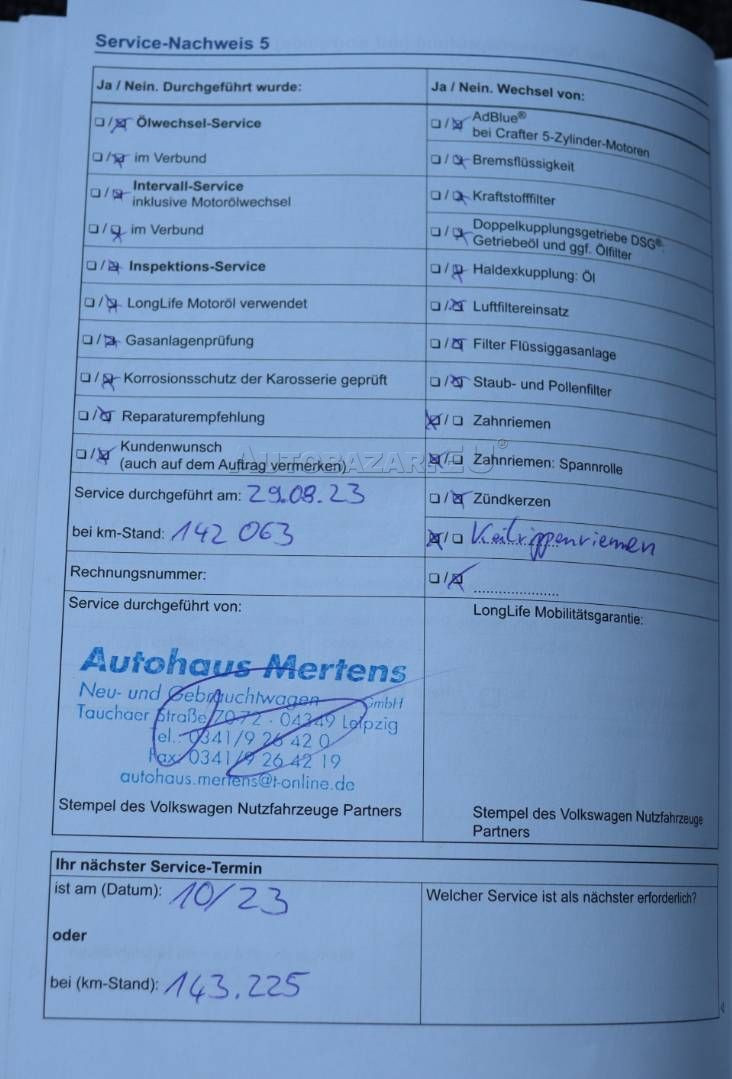 Service-Nachweis 5
Ja / Nein. Durchgeführt wurde:
☐ / ☒ Ölwechsel-Service
☐ / ☒ im Verbund
☐ / ☒ Intervall-Service
inklusive Motorölwechsel
☐ / ☒ im Verbund
☐ / ☒ Inspektions-Service
☐ / ☒ LongLife Motoröl verwendet
☐ / ☒ Gasanlagenprüfung
☐ / ☒ Korrosionsschutz der Karosserie geprüft
☐ / ☒ Reparaturempfehlung
☐ / ☒ Kundenwunsch
(auch auf dem Auftrag vermerken)
Service durchgeführt am: 29.08.23
bei km-Stand: 142 063
Rechnungsnummer:
Service durchgeführt von:
Autohaus Mertens
Neu- und Gebrauchtwagen GmbH
Tauchaer Straße 70-72 · 04349 Leipzig
Tel.: 0341/9 26 42 0
Fax: 0341/9 26 42 19
autohaus.mertens@t-online.de
Stempel des Volkswagen Nutzfahrzeuge Partners
Ja / Nein. Wechsel von:
☐ / ☒ AdBlue®
bei Crafter 5-Zylinder-Motoren
☐ / ☒ Bremsflüssigkeit
☐ / ☒ Kraftstofffilter
☐ / ☒ Doppelkupplungsgetriebe DSG®:
Getriebeöl und ggf. Ölfilter
☐ / ☒ Haldexkupplung: Öl
☐ / ☒ Luftfiltereinsatz
☐ / ☒ Filter Flüssiggasanlage
☐ / ☒ Staub- und Pollenfilter
☒ / ☐ Zahnriemen
☒ / ☐ Zahnriemen: Spannrolle
☐ / ☒ Zündkerzen
☒ / ☐ Keilrippenriemen
☐ / ☒ ......................
LongLife Mobilitätsgarantie:
Stempel des Volkswagen Nutzfahrzeuge
Partners
AUTOBAZAR.EU®
Ihr nächster Service-Termin
ist am (Datum): 10/23
oder
bei (km-Stand): 143.225
Welcher Service ist als nächster erforderlich?